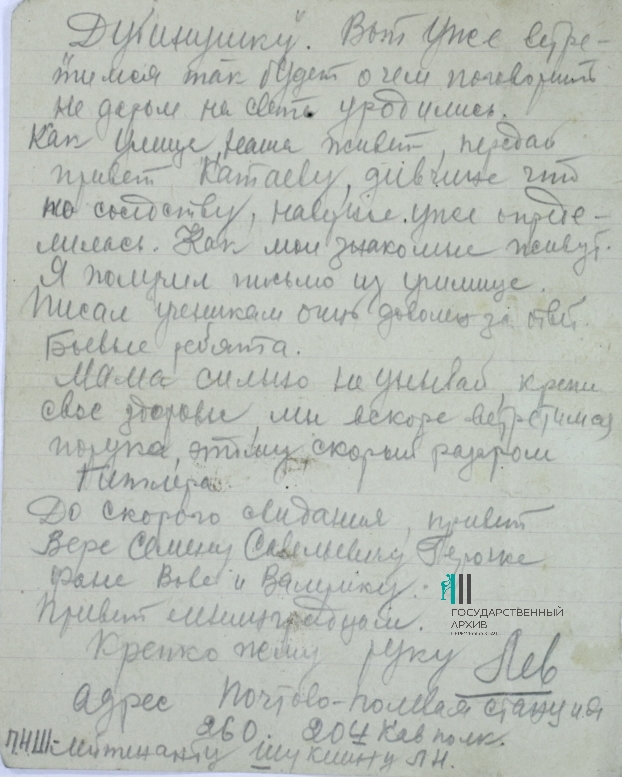 Дубинушку". Вот уже встре-
тимся так будет о чем поговорить
не даром на свет уродились.
Как улица наша живет, передай
привет Катаеву, дивчине что
по соседству, наверное уже опреде-
лилась. Как мои знакомые живут.
Я получил письмо из училища.
Писал ученикам очень доволен за ответ.
Боевые ребята.
Мама сильно не унывай, крепи
свое здоровье, мы вскоре встретимся
порука этому, скорый разгром
Гитлера
До скорого свидания, привет
Вере Семену Савельевичу Герочке
Фане Вове и Валерику.
Привет ленинградцам.
Крепко жму руку Лев
Адрес Почтово-полевая станция
260. 204 Кав полк.
ПНШ-лейтенанту Шукшину Л Н.
ГОСУДАРСТВЕННЫЙ
АРХИВ